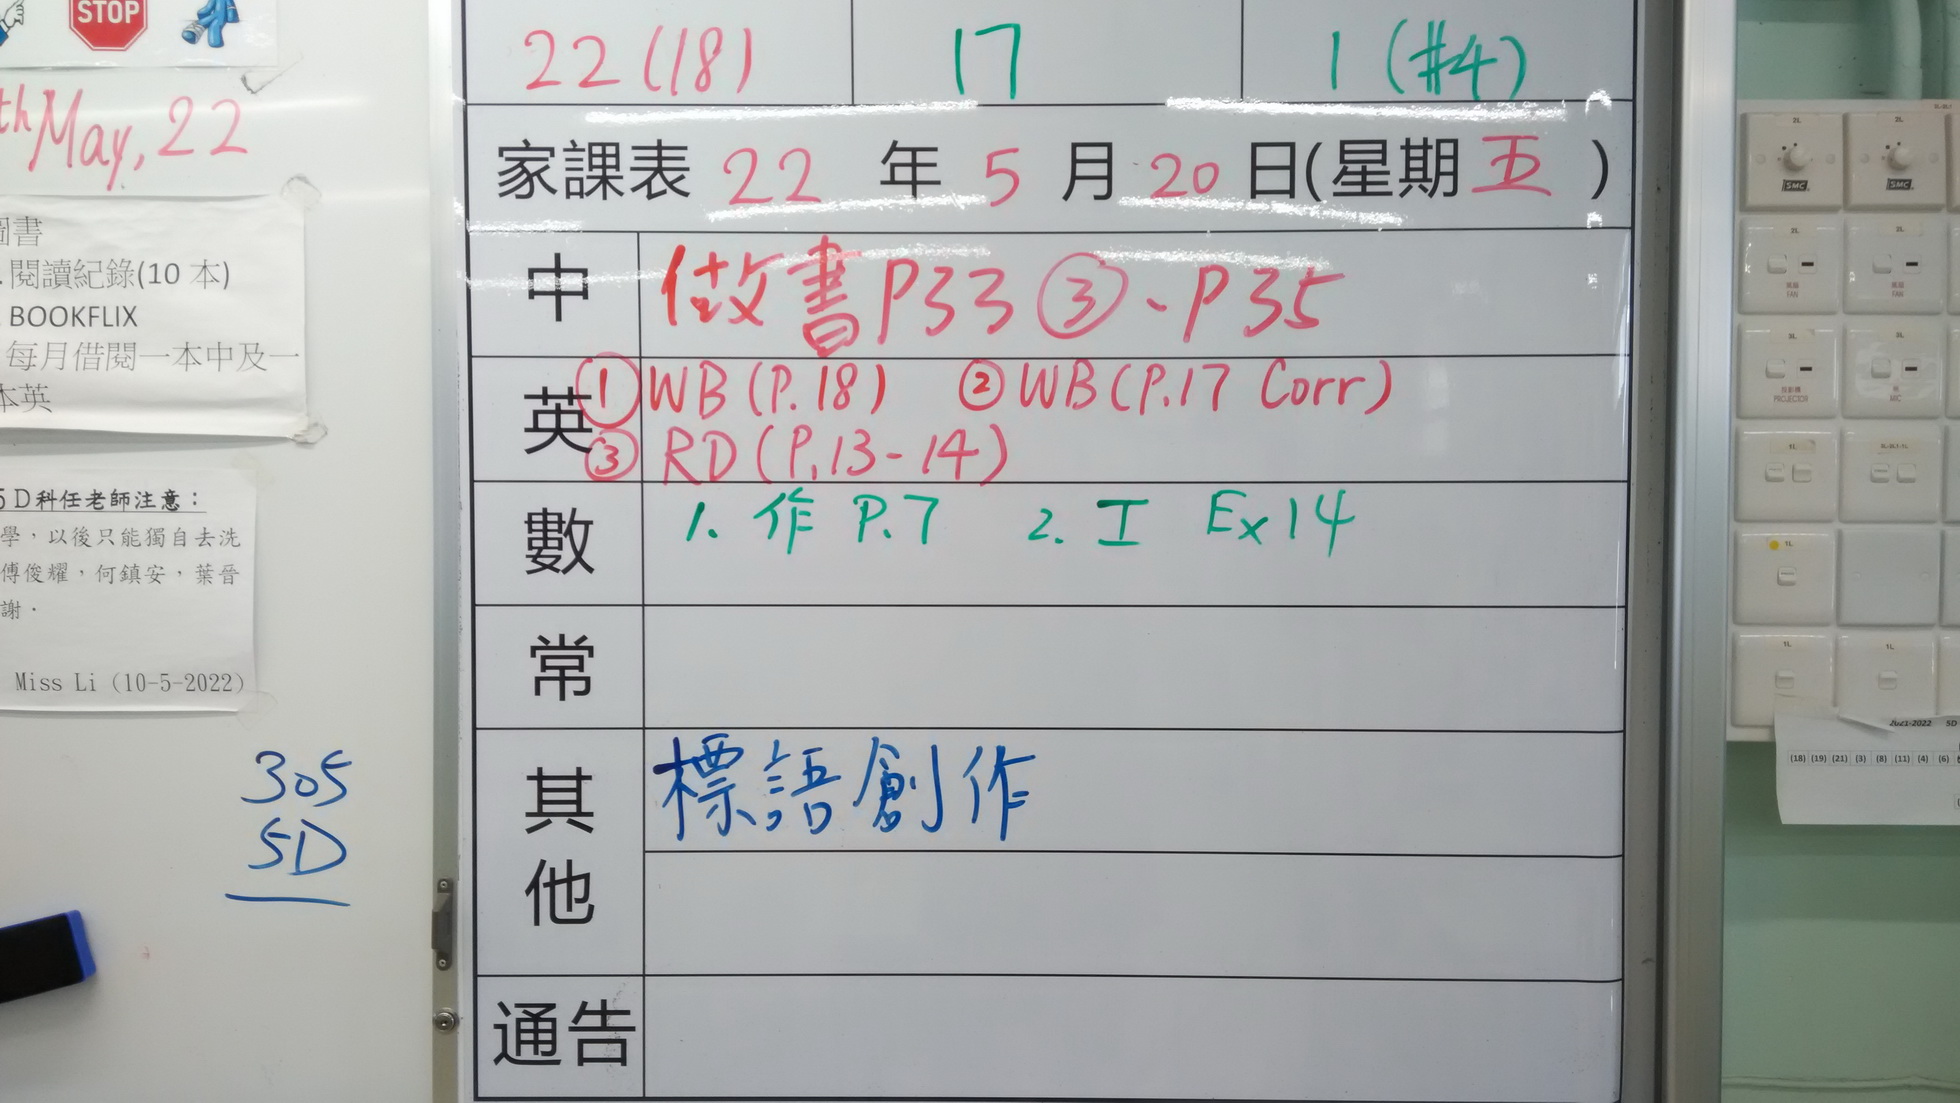 STOP
th May, 22
圖書
閱讀紀錄(10 本)
BOOKFLIX
每月借閱一本中及一
本英
5D科任老師注意：
學，以後只能獨自去洗
傅俊耀，何鎮安，葉晉
謝．
Miss Li (10-5-2022)
305
5D
22 (18) 17 1 (#4)
家課表 22 年 5 月 20 日(星期 五 )
中 做書P33③、P35
英 ①WB (P.18) ②WB (P.17 Corr)
③ RD (P.13-14)
數 1. 作 P.7 2. 工 Ex14
常
其他 標語創作
通告
2L 2L
SMC SMC
2L 2L
風扇 風扇
FAN FAN
3L 3L
投影機 咪
PROJECTOR MIC
1L
1L
1L 1L
2021-2022 5D
(18) (19) (21) (3) (8) (11) (4) (6)